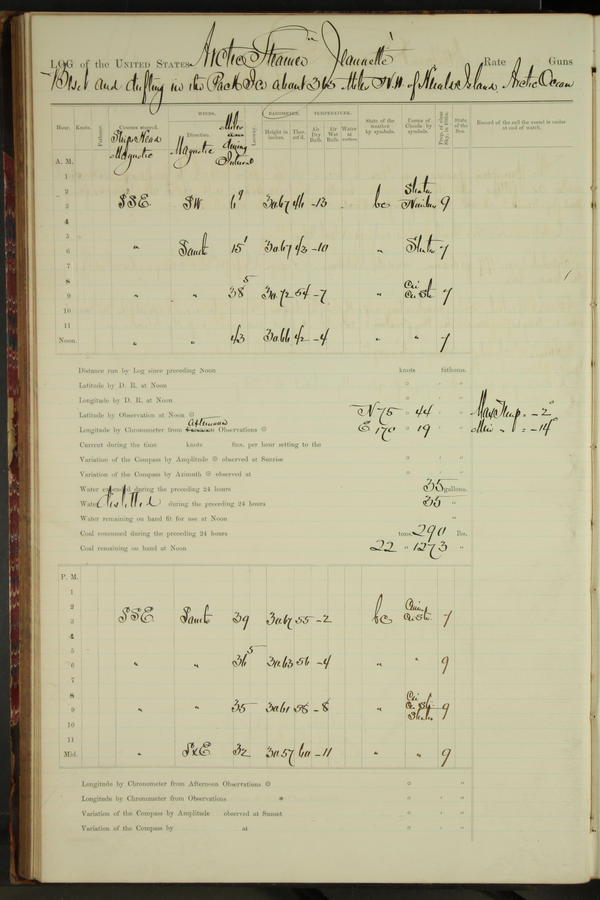 LOG of the UNITED STATES Arctic Steamer Jeannette Rate Guns
Beset and drifting in the Pack Ice about Miles N.W. of Island, Arctic Ocean
WINDS. BAROMETER. TEMPERATURE.
Hour. Knots. Fathoms. Courses steered. Direction. Leeway. Height in inches. Ther. att'd. Air Dry Bulb. Air Wet Bulb. Water at surface. State of the weather by symbols. Forms of Clouds by symbols. Prop. of clear Sky, in 10ths. State of the Sea. Record of the sail the vessel is under at end of watch.
Ship's Head Magnetic Magnetic Miles during Interval
A. M.
1
2
3 SSE SW 6 30.67 46 -13 bc Strata 9
4
5
6 " South 15 30.67 43 -10 " Strata 7
7
8
9 " " 38 5 30.72 54 -7 " Cir. Cir. St. 7
10
11
Noon. " " 43 30.66 42 -4 " " 7
Distance run by Log since preceding Noon knots fathoms.
Latitude by D. R. at Noon ° ' "
Longitude by D. R. at Noon ° ' "
Latitude by Observation at Noon N 75 ° 44 ' " Max Temp. = -2°
Longitude by Chronometer from Afternoon Observations E 170 ° 19 ' " Min " = -14°
Current during the time knots fms. per hour setting to the
Variation of the Compass by Amplitude observed at Sunrise ° ' "
Variation of the Compass by Azimuth observed at ° ' "
Water expended during the preceding 24 hours 35 gallons.
Water distilled during the preceding 24 hours 35 "
Water remaining on band fit for use at Noon "
Coal consumed during the preceding 24 hours tons 290 lbs.
Coal remaining on band at Noon 22 " 1273 "
P. M.
1
2
3 SSE South 39 30.67 55 -2 bc Cir. St. 7
4
5
6 " " 36 5 30.63 56 -4 " " 9
7
8
9 " " 35 30.61 58 -8 " Cir. Strata 9
10
11
Mid. " SxE 32 30.57 60 -11 " " 9
Longitude by Chronometer from Afternoon Observations ° "
Longitude by Chronometer from Observations ° ' "
Variation of the Compass by Amplitude observed at Sunset ° ' "
Variation of the Compass by at ° ' "